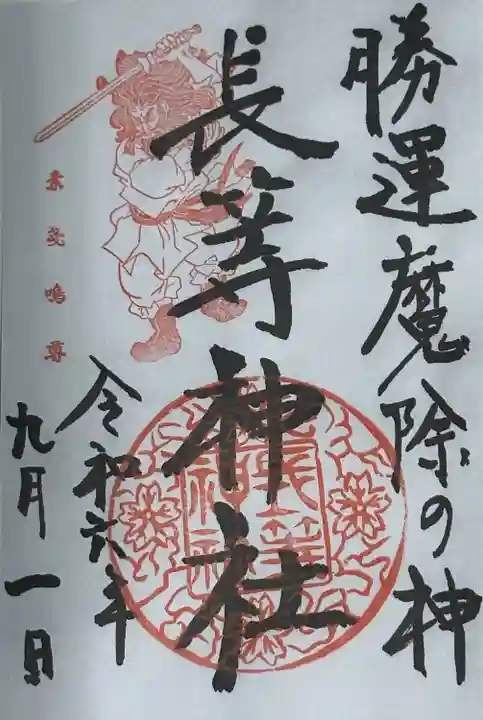 勝運魔除の神
長等神社
素戔嗚尊
令和六年
九月一日
長等
神社